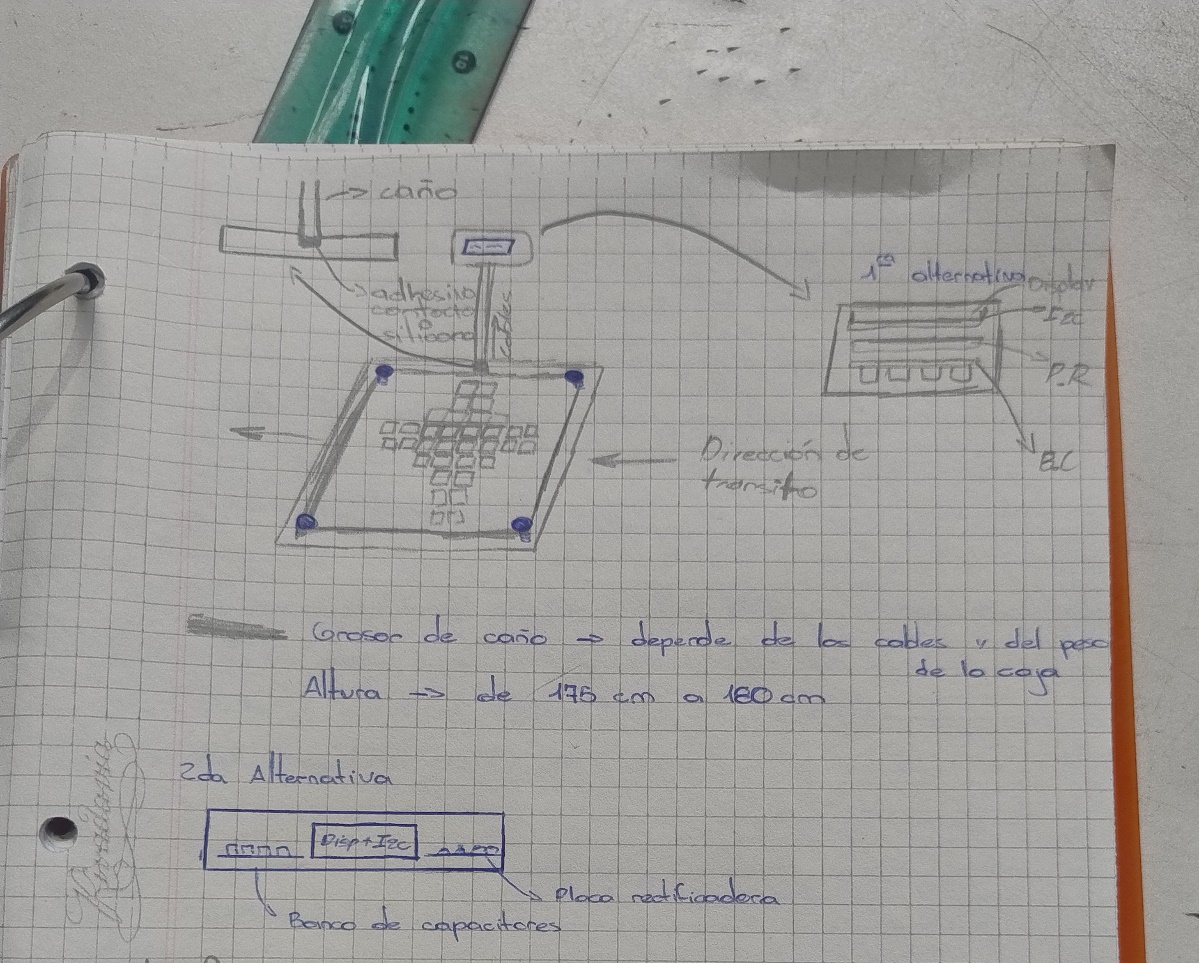 caño
adhesivo
contacto
o
silicona
cables
1ra alternativa
Display
I2C
P.R
B.C
Dirección de
transito
Grosor de caño → depende de los cables y del peso
de la caja
Altura → de 175 cm a 180 cm
2da Alternativa
Disp+I2C
Placa rectificadora
Banco de capacitores